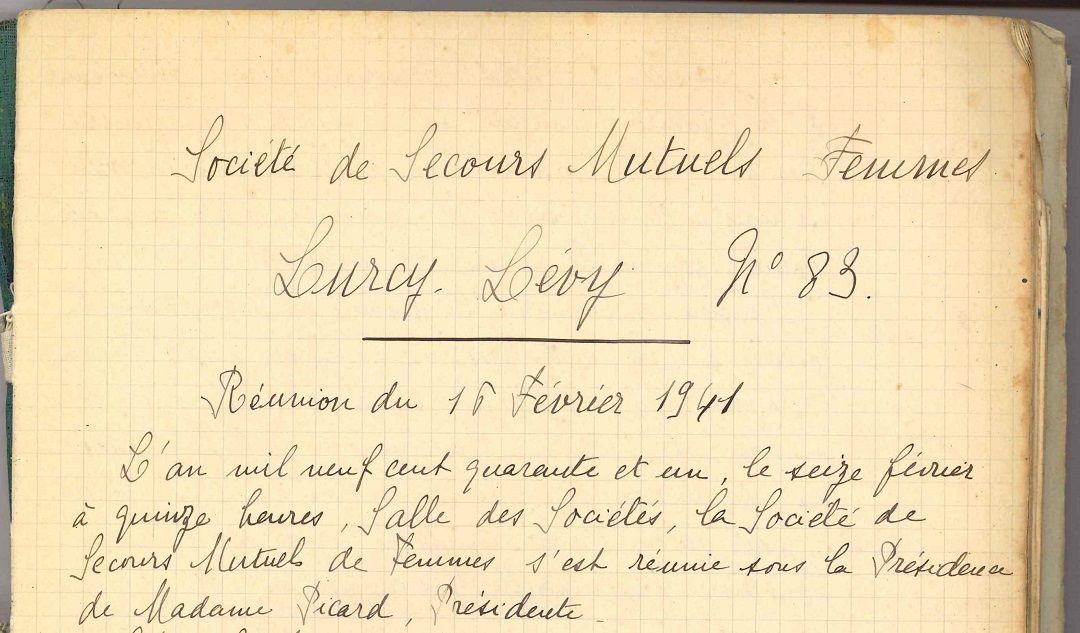 Société de Secours Mutuels Femmes
Lurcy-Lévy N° 83.
Réunion du 16 Février 1941
L'an mil neuf cent quarante et un, le seize février
à quinze heures, Salle des Sociétés, la Société de
Secours Mutuels de Femmes s'est réunie sous la Présidence
de Madame Picard, Présidente.